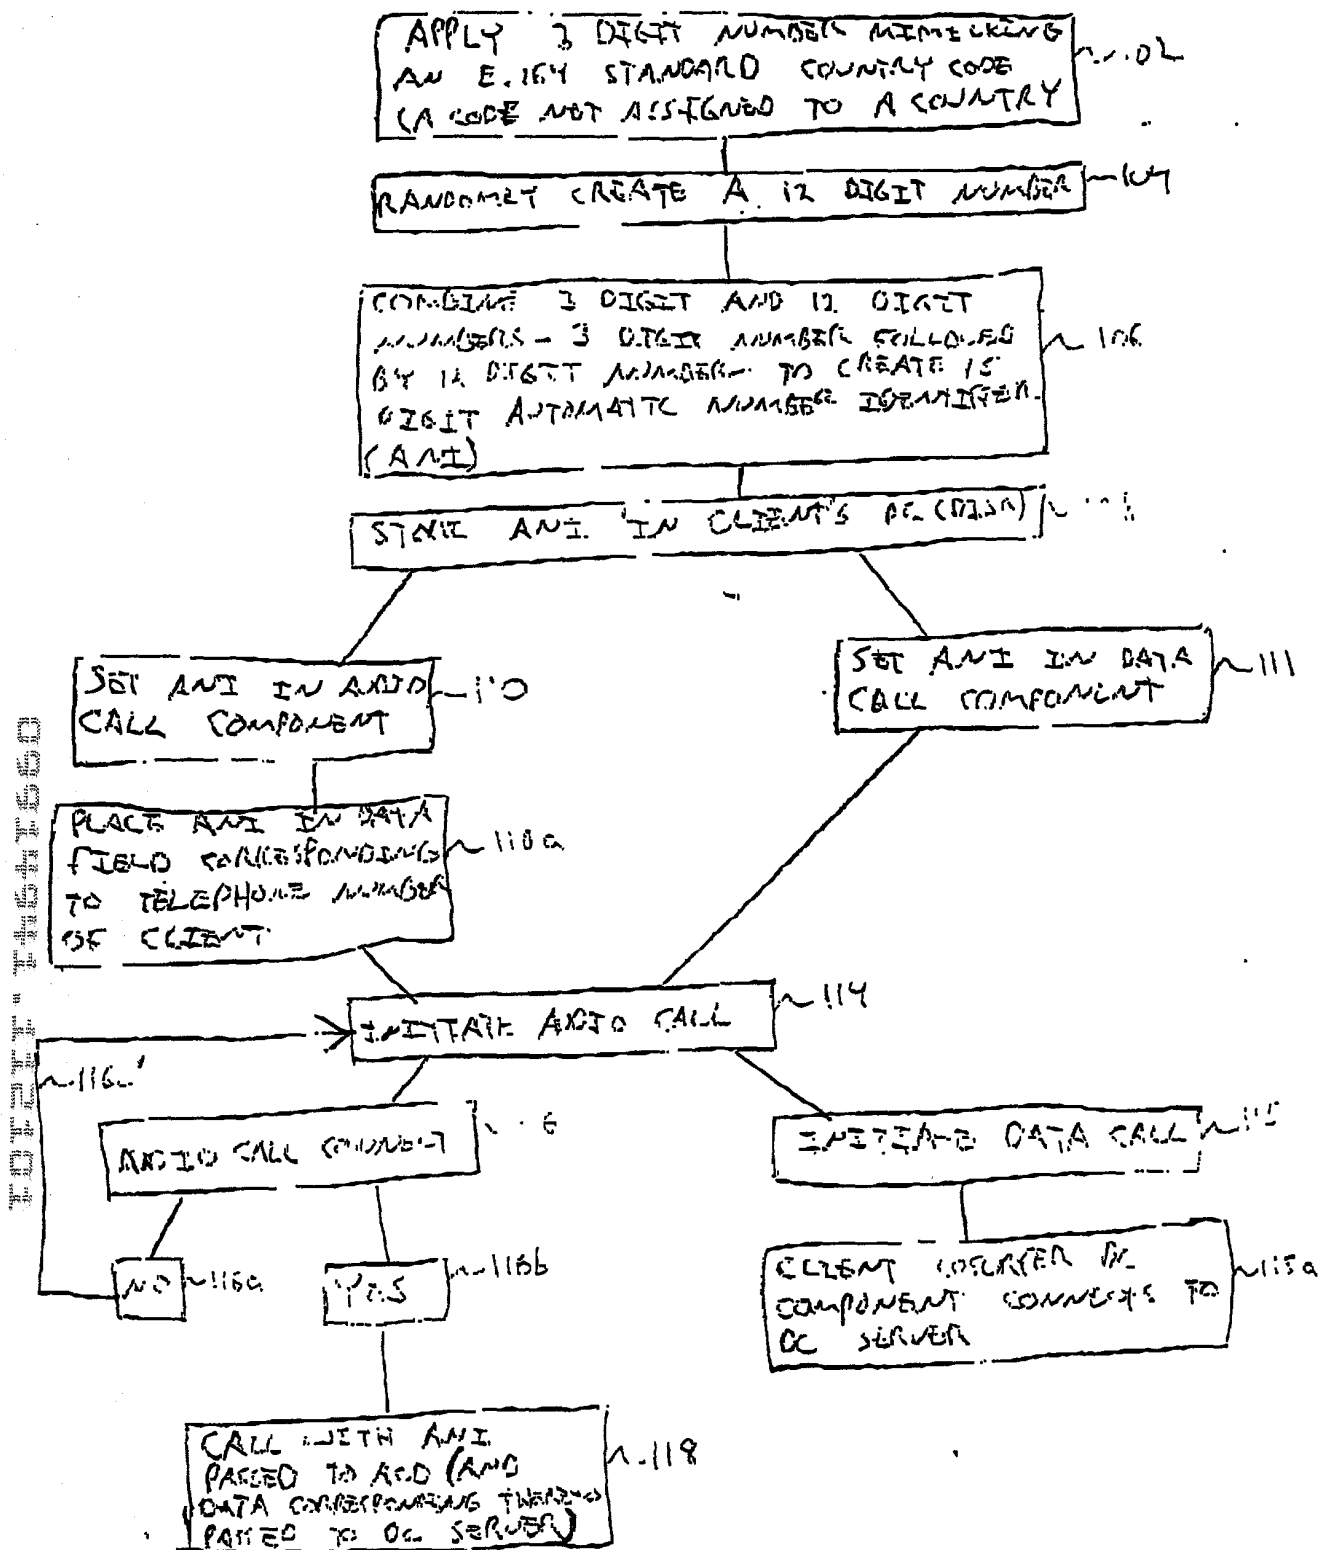 APPLY 3 DIGIT NUMBER MIMICKING
AN E.164 STANDARD COUNTRY CODE
(A CODE NOT ASSIGNED TO A COUNTRY
102
RANDOMLY CREATE A 12 DIGIT NUMBER
104
COMBINE 3 DIGIT AND 12 DIGIT
NUMBERS - 3 DIGIT NUMBER FOLLOWED
BY 12 DIGIT NUMBER - TO CREATE 15
DIGIT AUTOMATIC NUMBER IDENTIFIER
(ANI)
106
STORE ANI IN CLIENT'S PC (DISK)
SET ANI IN AUDIO
CALL COMPONENT
110
SET ANI IN DATA
CALL COMPONENT
111
PLACE ANI IN DATA
FIELD CORRESPONDING
TO TELEPHONE NUMBER
OF CLIENT
110a
INITIATE AUDIO CALL
114
116a'
AUDIO CALL CONNECT
INITIATE DATA CALL
115
NO
116a
YES
116b
CLIENT DC
COMPONENT CONNECTS TO
DC SERVER
115a
CALL WITH ANI
PASSED TO ACD (AND
DATA CORRESPONDING THERETO
PASSED TO DC SERVER)
118